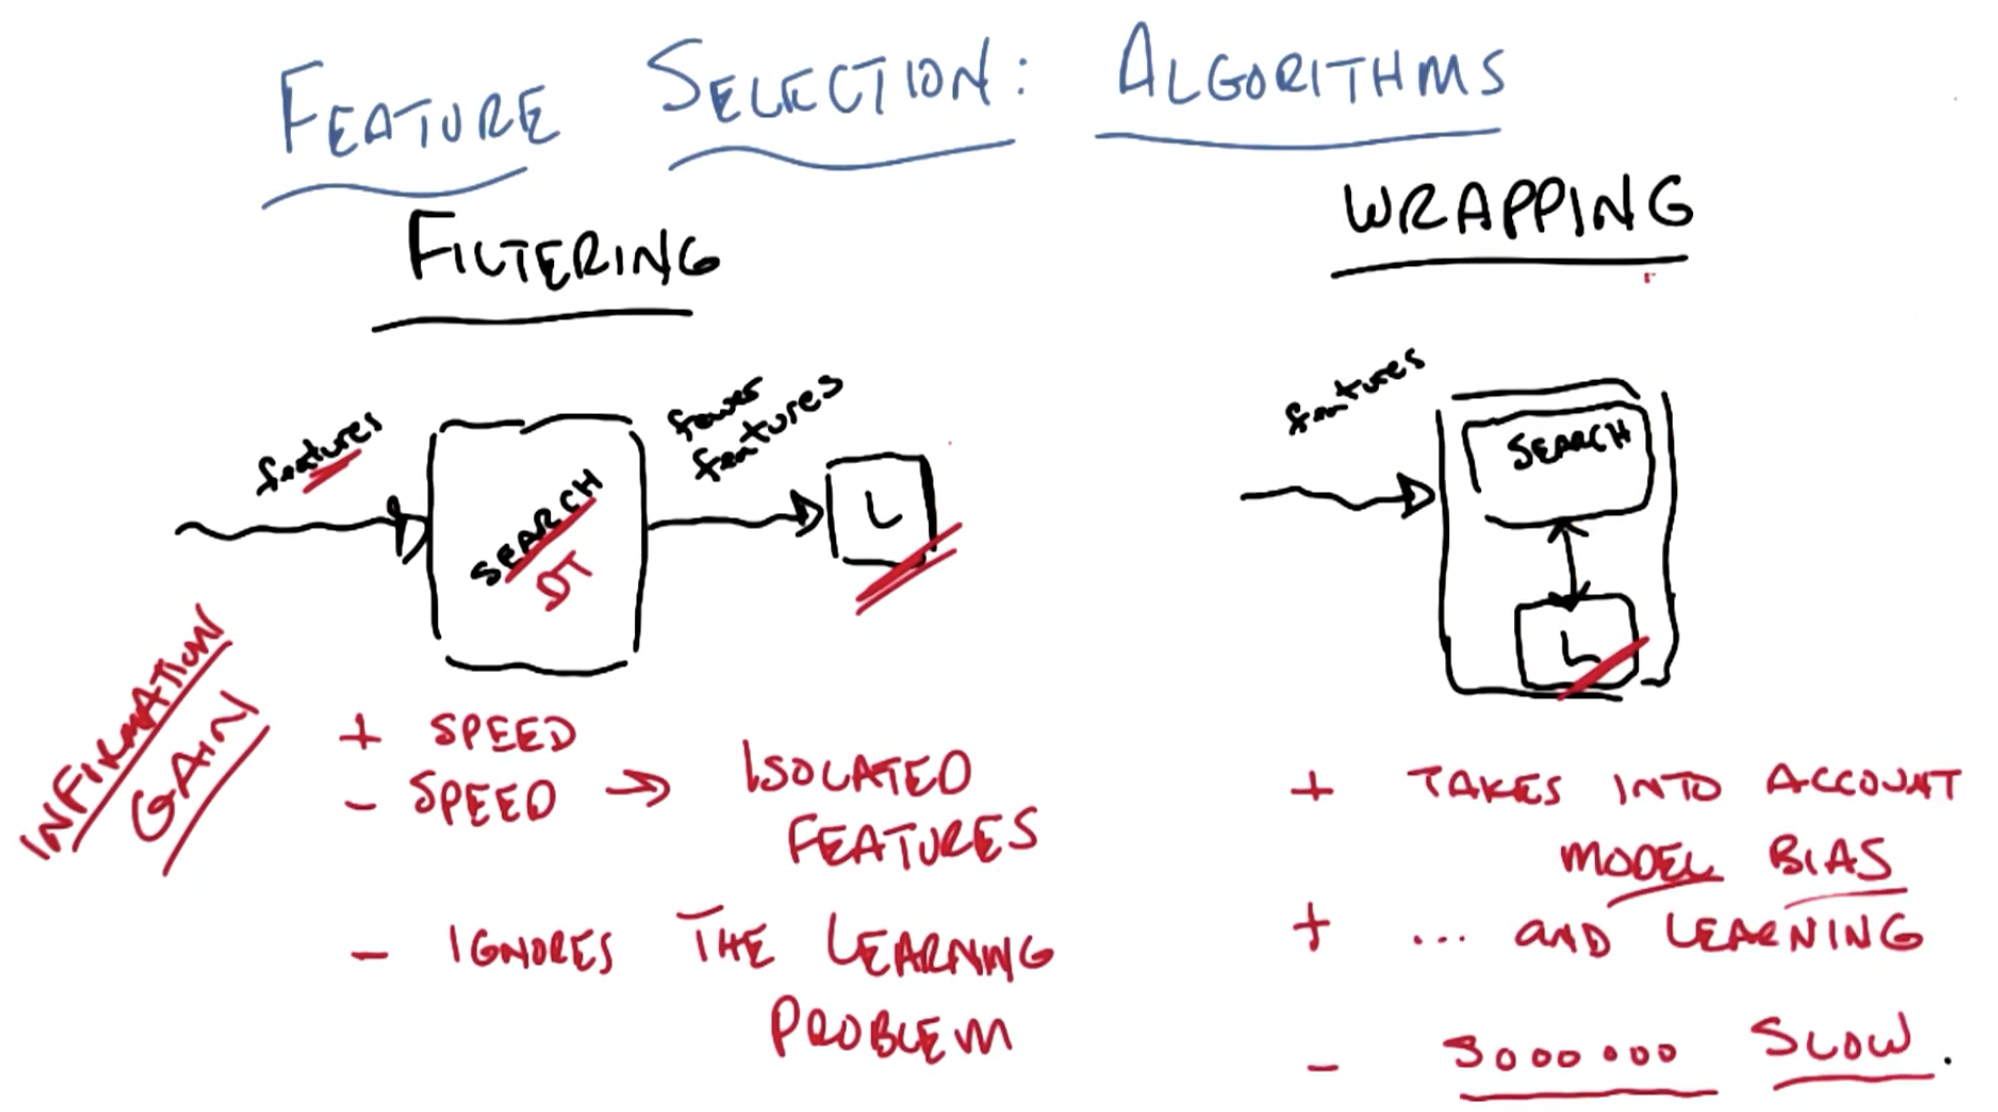 FEATURE SELECTION: ALGORITHMS
FILTERING
features
SEARCH
DT
fewer
features
L
INFIRMATION
GAIN
+ SPEED
- SPEED → ISOLATED
FEATURES
- IGNORES THE LEARNING
PROBLEM
WRAPPING
features
SEARCH
L
+ TAKES INTO ACCOUNT
MODEL BIAS
+ ... AND LEARNING
- SOOOOOOO SLOW.